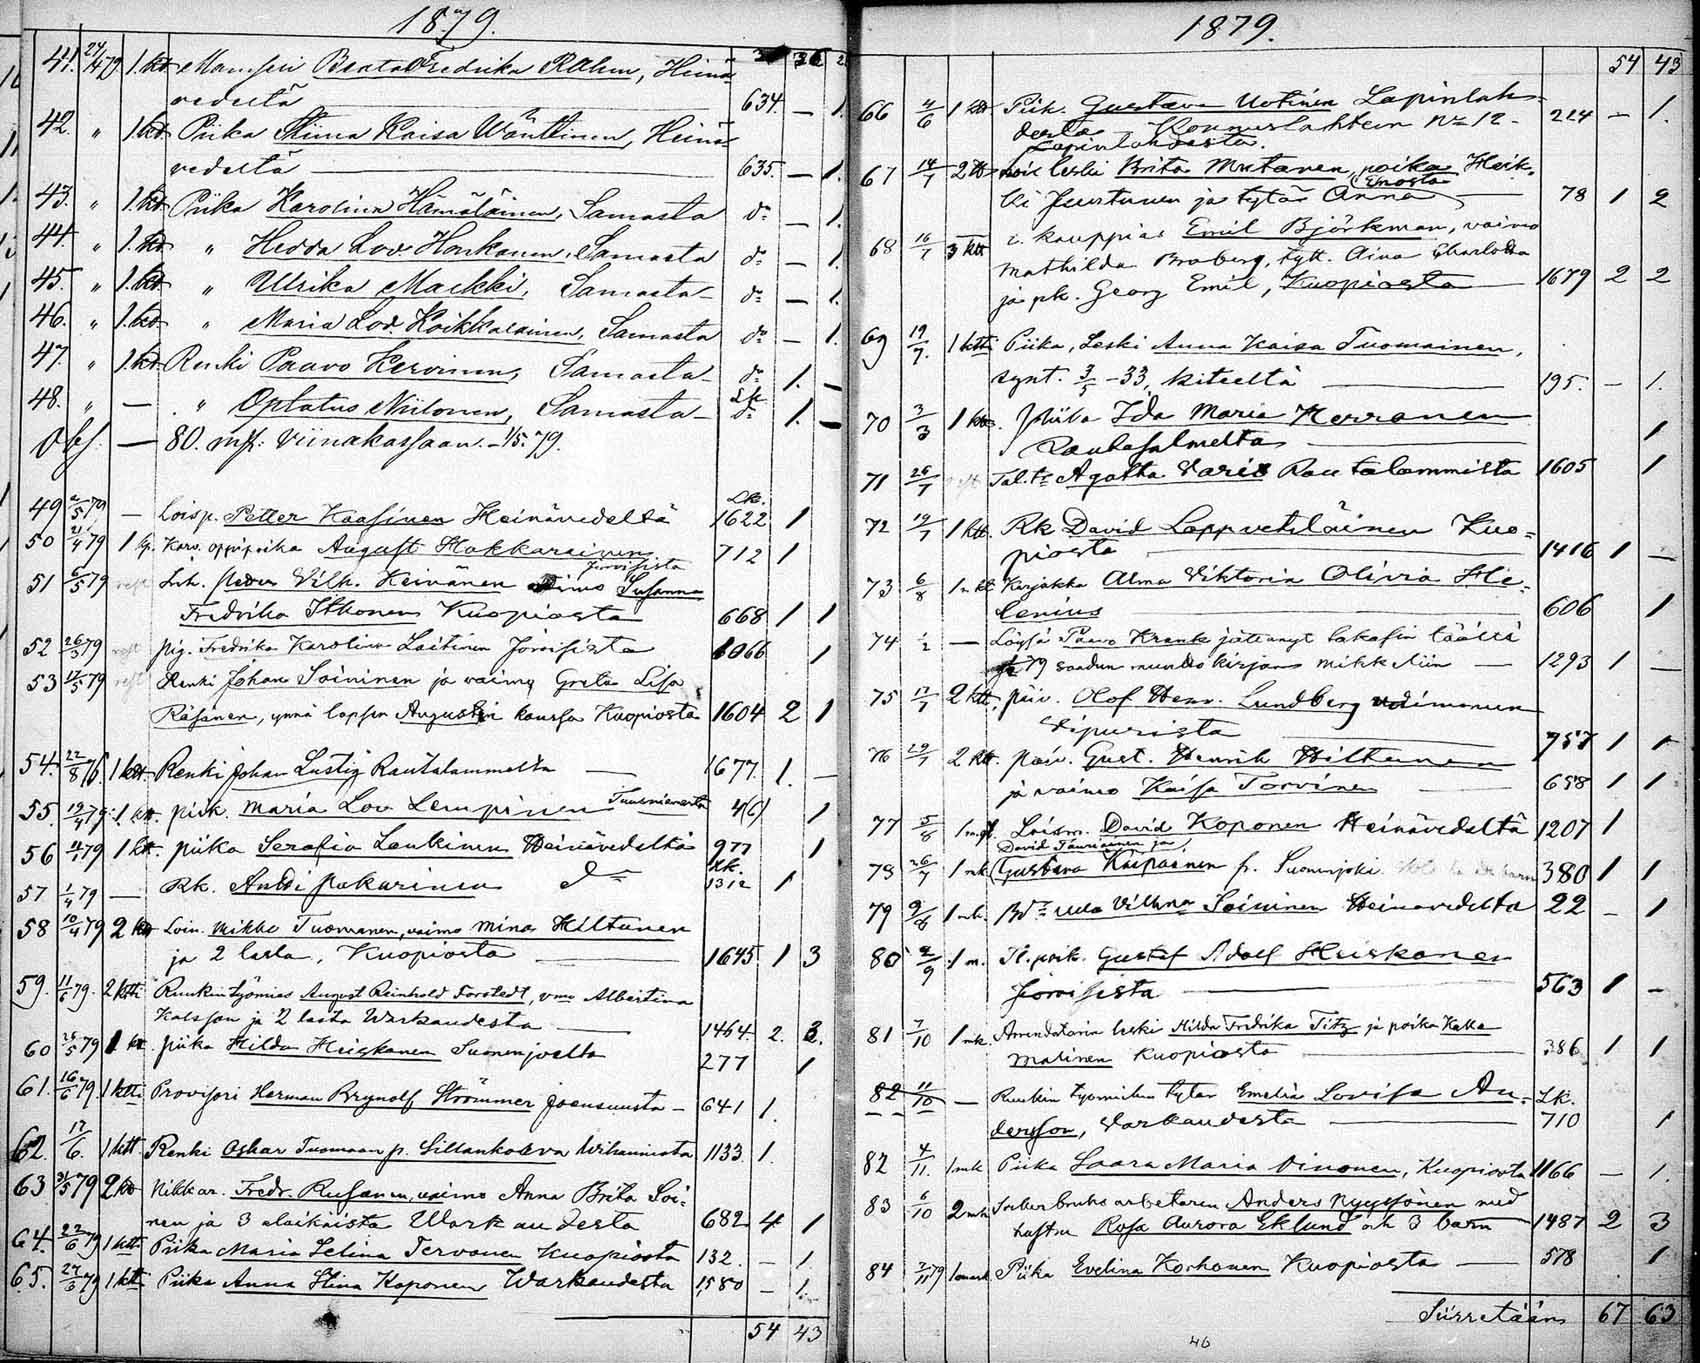 1879.
41. 27/4 79 1.kt. Mamseli Beata Fredrika Rahm, Heinä-
vedeltä 634. — 1.
42. " 1.kt. Piika Stiina Kaisa Wänttinen, Heinä-
vedeltä 635. — 1.
43. " 1.kt. Piika Karolina Hämäläinen, Samasta d:o — 1.
44. " 1.kt. " Hedda Lov. Honkanen, Samasta d:o — 1.
45. " 1.kt. " Ulrika Markki, Samasta d:o — 1.
46. " 1.kt. " Maria Lov. Koikkalainen, Samasta d:o — 1.
47. " 1.kt. Renki Paavo Kervinen, Samasta d:o 1. —
48. " — " Optatus Niilonen, Samasta Lk. d:o 1. —
Obs. — 80. mk. Viinakassaan. 1/5. 79.
49 2/5 79 — Loisp. Petter Kaasinen Heinävedeltä Lk. 1622 1
50 21/4 79 1 Karv. oppipoika August Hakkarainen
Jorvisista 712 1
51 6/5 79 Pedur Vilh. Keinänen vaimo Susanna
Fredrika Itkonen Kuopiosta 668 1 1
52 26/3 79 pig. Fredrika Karolina Laitinen Jorvisista 1066 1
53 17/5 79 Renki Johan Soininen ja vaimo Greta Lisa
Räsänen, ynnä lapsen Augustin kanssa Kuopiosta 1604 2 1
54. 22/8 76. 1 ktt. Renki Johan Lustig Rautalammelta — 1677. 1. —
55. 19/4 79. 1. kt. piik. Maria Lov Lempinen Tuusniemestä 461 1
56 4/1 79 1 kt. piika Serafia Laukinen Heinävedeltä 977 1
57 1/4 79 — Rk. Antti Pakarinen d:o Lk. 1312 1
58 10/4 79 2 kt Loin. Mikko Tuomanen, vaimo Mina Hiltunen
ja 2 lasta, Kuopiosta — 1645 1 3
59. 11/6 79. 2 ktti Ruukintyömies August Reinhold Forstedt, vmo Albertina
Kalsson ja 2 lasta Warkaudesta — 1464. 2. 3.
60 25/5 79 1 kt. piika Hilda Heiskanen Suonenjoelta 277 1
61. 16/6 79. 1 ktti Provisori Herman Brynolf Strömmer Joensuusta — 641 1.
62. 17/6. 1 ktt. Renki Oskar Tuomaan p. Sillankoleva Wihannista 1133 1.
63 31/5 79 2 kt Nikkar. Fredr. Rusanen, vaimo Anna Brita Soi-
nen ja 3 alaikäistä Warkaudesta 682 4 1
64. 22/6 79 1 ktt. Piika Maria Selina Tervonen Kuopiosta 132. — 1
65. 27/3 79 1 ktt. Piika Anna Stina Koponen Warkaudesta 1580 — 1.
54 43
1879.
54 43
66 4/6 1 kt Piik. Gustava Uotinen Lapinlah-
desta Konnuslahteen No 12 - 224 — 1.
Lapinlahdesta.
67 14/7 2 kt lois leski Brita Mutanen, poika Heik-
ki Juutunen ja tytär Anna Enosta 78 1 2
68 16/7 3 ktt e. kauppias Emil Björkman, vaimo
Mathilda Broberg, tytt. Aina Charlotta
ja pk. Georg Emil, Kuopiosta — 1679 2 2
69 19/7. 1 ktti Piika, Leski Anna Kaisa Tuomainen,
synt. 3/5 -33, Kiteeltä — 195. — 1.
70 3/3 1 kt. Piika Ida Maria Kerranen
Rautasalmelta — 1
71 26/7 Tal. tr Agatha Varis Rautalammista 1605 1
72 19/7 1 ktt. Rk David Lappveteläinen Kuo-
piosta — 1416 1 —
73 6/8 1 Alma Viktoria Olivia He-
lenius — 606 1
74 1/2 — Löysä Paavo Krank jättänyt
79 saadun muuttokirjan Mikkeliin — 1293 1 —
75 17/7 2 ktt. päiv. Olof Henr. Lundberg vaimonen
Vipurista — 757 1 1
76 29/7 2 ktt. päiv. Gust. Henrik Hiltunen
ja vaimo Kaisa Torvinen — 658 1 1
77 5/8 1 mk. Loism. David Koponen Heinävedeltä 1207 1
David Tauriainen ja
78 26/7 1 mk Gustava Kaipaanen fr. Suonenjoki 380 1 1
79 9/8 1 mk. Vilhna Soininen Heinävedeltä 22 — 1
80 2/9 1 m. Gustaf Adolf Heiskanen
Jorvisista — 563 1 —
81 7/10 1 mk. Arendatorin leski Hilda Fredrika Titz ja poika Kalle
Malinen Kuopiosta — 386 1 1
82 11/10 — Ruukin työmiehen tytär Emelia Lovisa An-
dersson, Varkaudesta — Lk. 710 1
82 4/11. 1 mk Piika Saara Maria Vinonen, Kuopiosta 1166 — 1.
83 6/10 2 mk Sockerbruksarbetaren Anders Nyyssönen med
hustru Rosa Aurora Eklund och 3 barn 1487 2 3
84 2/11 79 1 mark Piika Evelina Korhonen Kuopiosta — 578 1
Siirretään 67 63
46